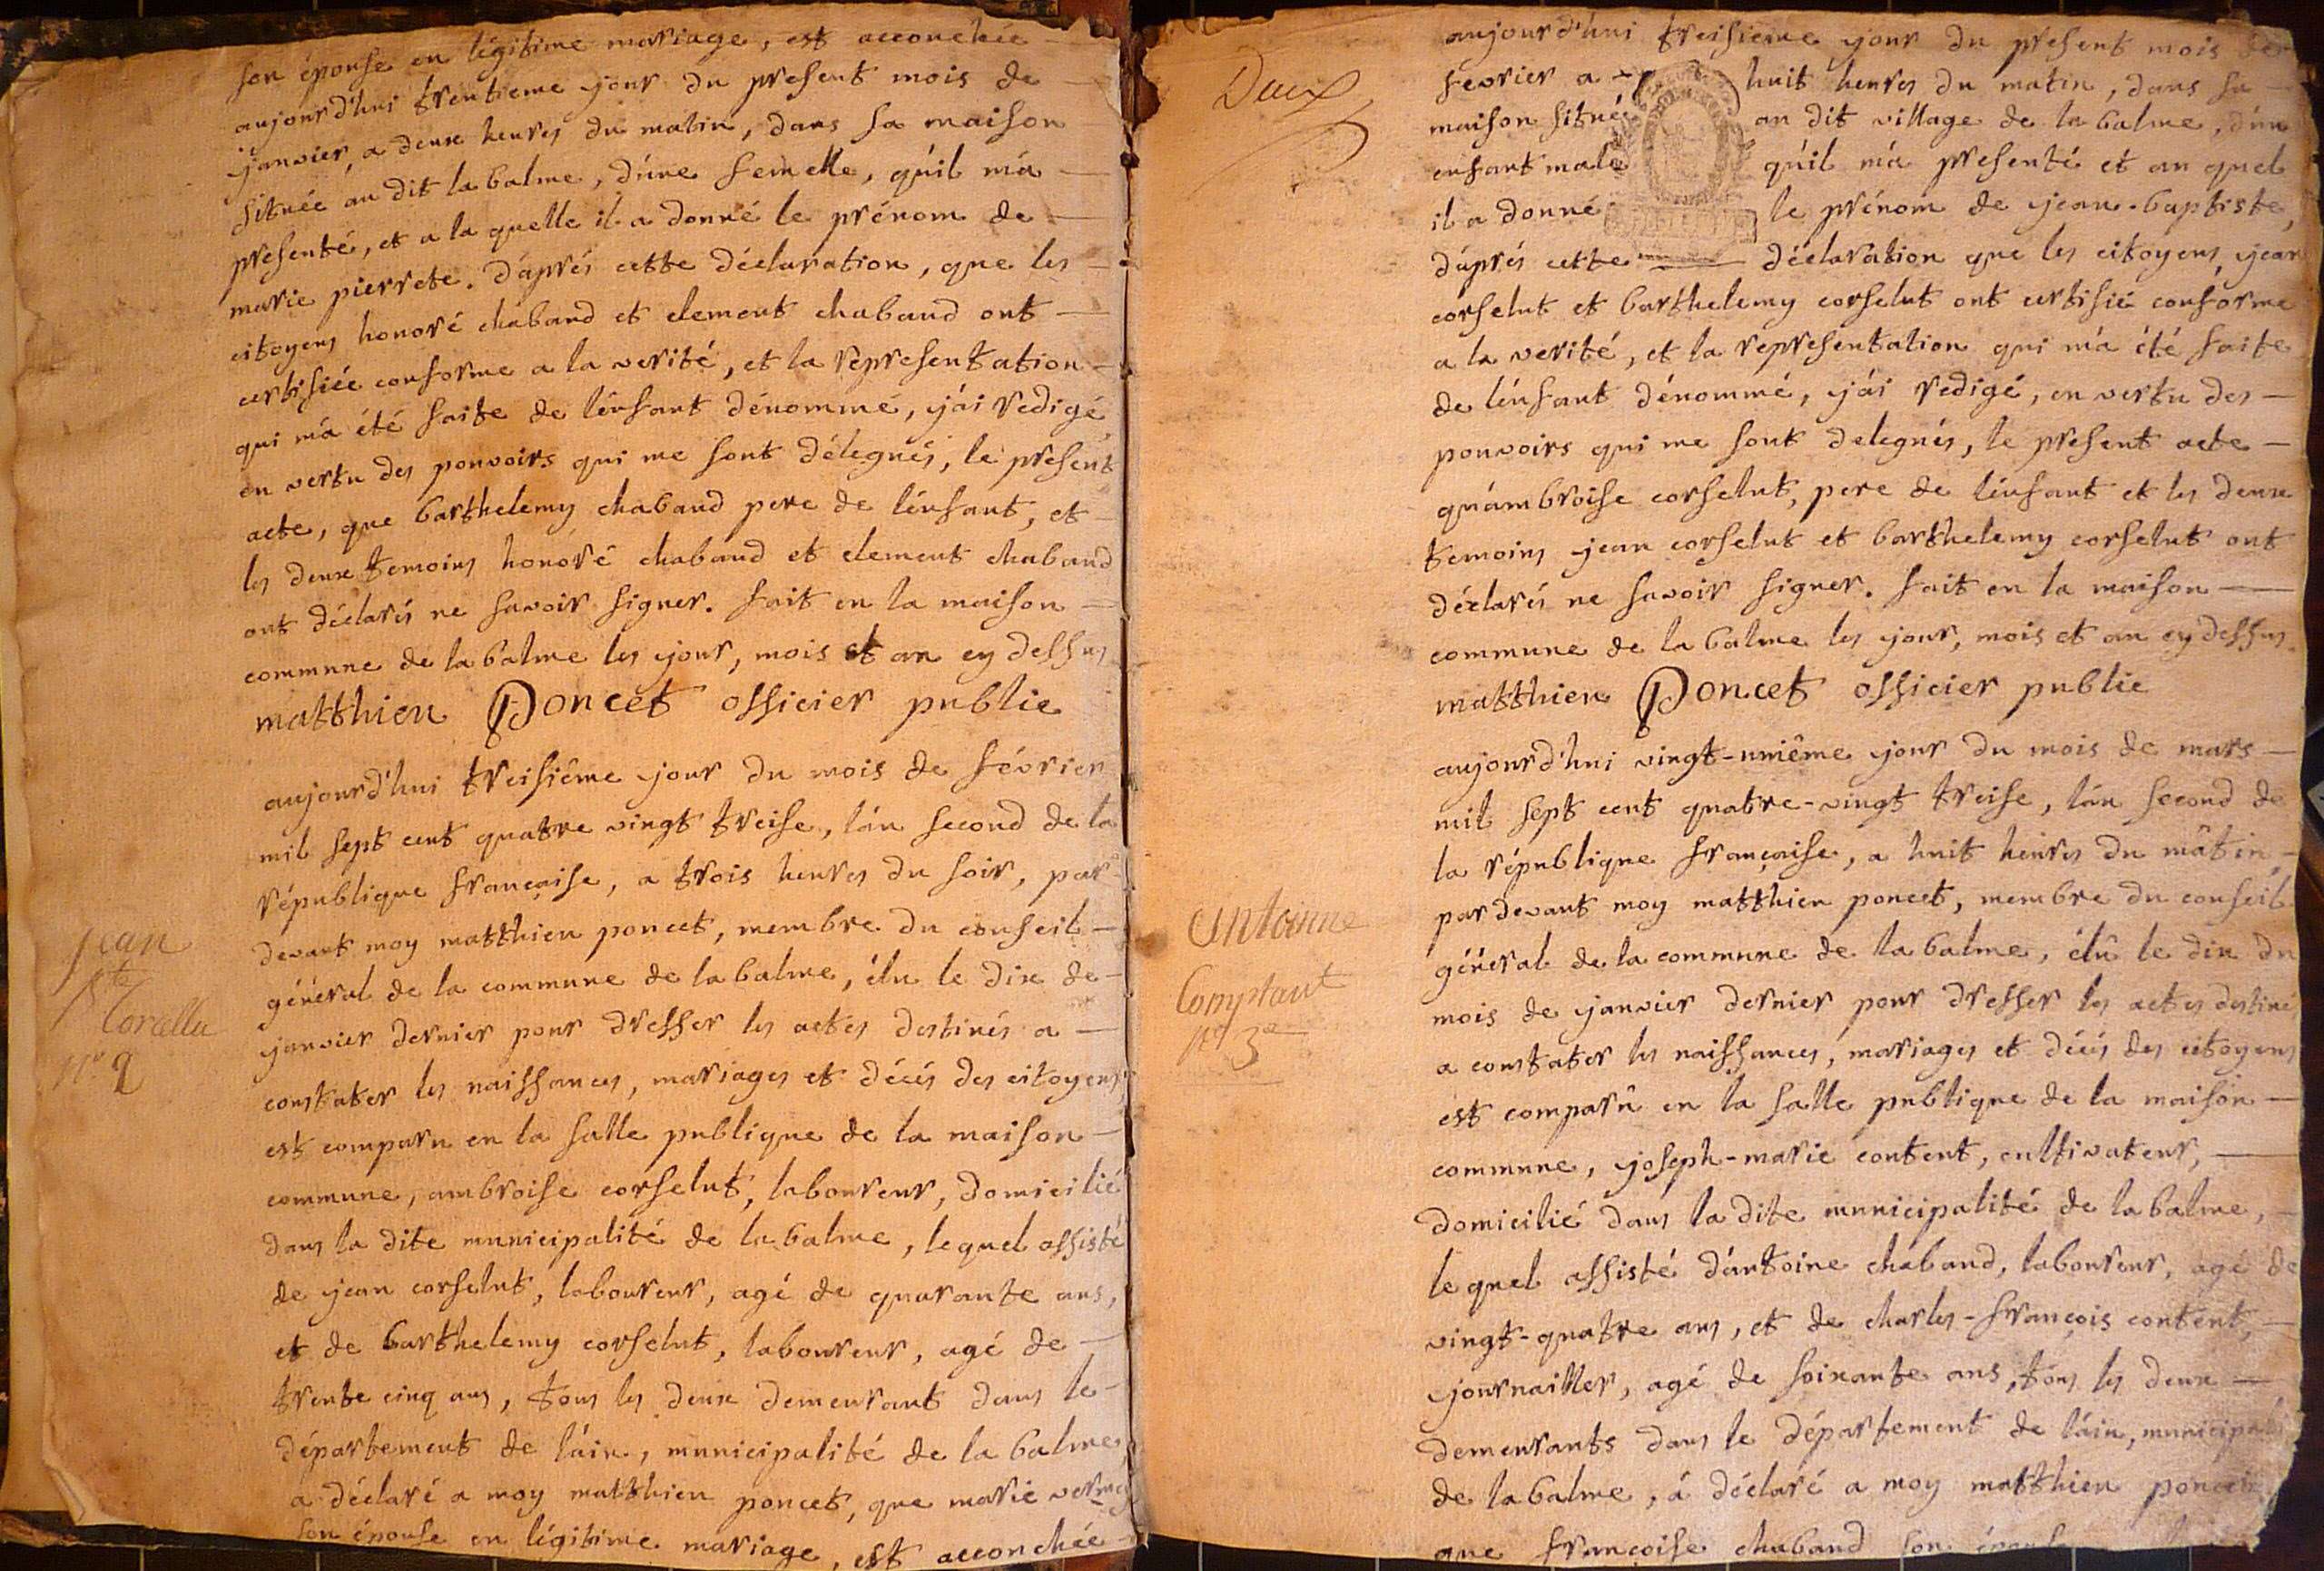 son épouse en légitime mariage, est accouchée
aujourd'hui trentieme jour du present mois de
janvier, a deux heures du matin, dans sa maison
située au dit la balme, d'úne femelle, qu'il m'á
presenté, et a la quelle il a donné le prénom de
marie pierrete. d'aprés cette déclaration, que les
citoyens honoré chaband et clement chaband ont
certifiée conforme a la verité, et la représentation
qui m'á été faite de l'énfant dénommé, j'ái redigé
en vertu des pouvoirs qui me sont délegués, le present
acte, que barthelemy chaband pere de l'énfant, et
les deux temoins honoré chaband et clement chaband
ont déclarés ne savoir signer. fait en la maison
commune de la balme les jour, mois et an cy dessus
matthieu Poncet officier public
aujourd'hui treisiême jour du mois de février
mil sept cent quatre vingt treise, l'án second de la
république française, a trois heures du soir, par
devant moy matthieu poncet, membre du conseil
général de la commune de la balme, élu le dix de
janvier dernier pour dresser les actes destinés a
constater les naissances, mariages et décés des citoyens
est comparu en la salle publique de la maison
commune, ambroise corselut, laboureur, domicilié
dans la dite municipalité de la balme, lequel assisté
de jean corselut, laboureur, agé de quarante ans,
et de barthelemy corselut, laboureur, agé de
trente cinq ans, tous les deux demeurant dans le
département de l'áin, municipalité de la balme,
a déclaré a moy matthieu poncet, que marie
son épouse en légitime mariage, est accouchée
jean
Bte
Corcellu
No 2
Deux
aujourd'hui treisieme jour du present mois de
fevrier a huit heures du matin, dans sa
maison situé au dit village de la balme, d'ún
enfant male qu'il m'á presenté et au quel
il a donné le prénom de jean-baptiste,
d'áprés cette déclaration que les citoyens, jean
corselut et barthelemy corselut ont certifié conforme
a la verité, et la representation qui m'á été faite
de l'énfant dénommé, j'ái redigé, en vertu des
pouvoirs qui me sont delegués, le present acte
qu'ámbroise corselut, pere de l'énfant et les deux
temoins jean corselut et barthelemy corselut ont
déclarés ne savoir signer. fait en la maison
commune de la balme les jour, mois et an cy dessus.
matthieu Poncet officier public
aujourd'hui vingt-uniême jour du mois de mars
mil sept cent quatre-vingt treise, l'án second de
la république française, a huit heures du mâtin,
par devant moy matthieu poncet, membre du conseil
général de la commune de la balme, élû le dix du
mois de janvier dernier pour dresser les actes destiné
a constater les naissances, mariages et décés des citoyens
est comparû en la salle publique de la maison
commune, joseph-marie content, cultivateur,
domicilié dans la dite municipalité de la balme,
le quel assisté d'ántoine chaband, laboureur, agé de
vingt-quatre ans, et de charles-françois content,
journallier, agé de soixante ans, tous les deux
demeurants dans le département de l'áin,
de la balme, á déclaré a moy matthieu poncet
que françoise chaband son
Antoinne
Comptant
No 3e